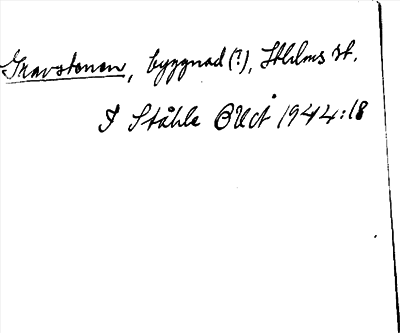 Gravstenen, byggnad (?), Sthlms st.
I Ståhle 1944:18